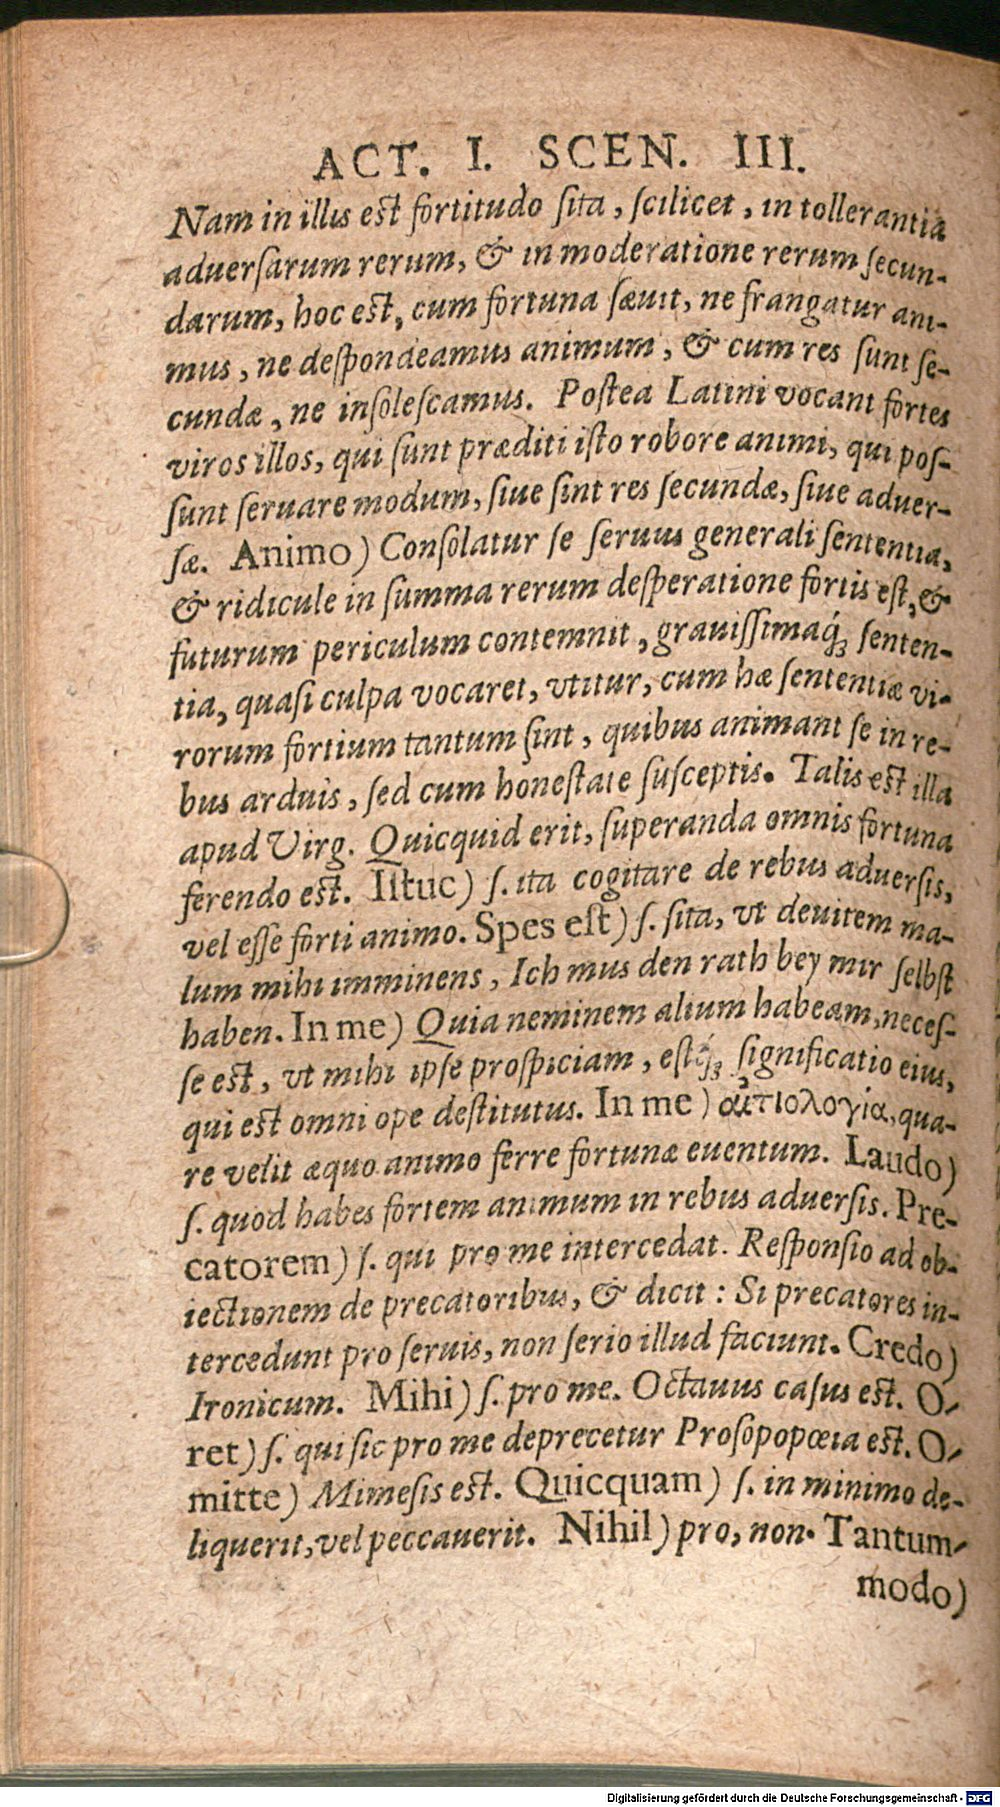 ACT. I. SCEN. III.
Nam in illis est fortitudo ſita, ſcilicet, in tollerantia
aduerſarum rerum, & in moderatione rerum ſecun-
darum, hoc est, cum fortuna ſæuit, ne frangatur ani-
mus, ne deſpondeamus animum, & cum res ſunt ſe-
cundæ, ne inſoleſcamus. Poſtea Latini vocant fortes
viros illos, qui ſunt præditi iſto robore animi, qui poſ-
ſunt ſeruare modum, ſiue ſint res ſecundæ, ſiue aduer-
ſæ. Animo) Conſolatur ſe ſeruus generali ſententia,
& ridicule in ſumma rerum deſperatione fortis est, &
futurum periculum contemnit, grauiſſimaq́; ſenten-
tia, quaſi culpa vocaret, vtitur, cum hæ ſententiæ vi-
rorum fortium tantum ſint, quibus animant ſe in re-
bus arduis, ſed cum honeſtate ſuſceptis. Talis est illa
apud Virg. Quicquid erit, ſuperanda omnis fortuna
ferendo est. Iſtuc) ſ. ita cogitare de rebus aduerſis,
vel eſſe forti animo. Spes eſt) ſ. ſita, vt deuitem ma-
lum mihi imminens, Ich mus den rath bey mir ſelbſt
haben. In me) Quia neminem alium habeam, neceſ-
ſe est, vt mihi ipſe proſpiciam, eſtq́; ſignificatio eius,
qui est omni ope deſtitutus. In me) αἰτιολογία, qua-
re velit æquo animo ferre fortunæ euentum. Laudo)
ſ. quod habes fortem animum in rebus aduerſis. Pre-
catorem) ſ. qui pro me intercedat. Reſponſio ad ob-
iectionem de precatoribus, & dicit: Si precatores in-
tercedunt pro ſeruis, non ſerio illud faciunt. Credo)
Ironicum. Mihi) ſ. pro me. Octauus caſus est. O-
ret) ſ. qui ſic pro me deprecetur Proſopopœia est. O-
mitte) Mimeſis est. Quicquam) ſ. in minimo de-
liquerit, vel peccauerit. Nihil) pro, non. Tantum-
modo)
Digitalisierung gefördert durch die Deutsche Forschungsgemeinschaft - DFG